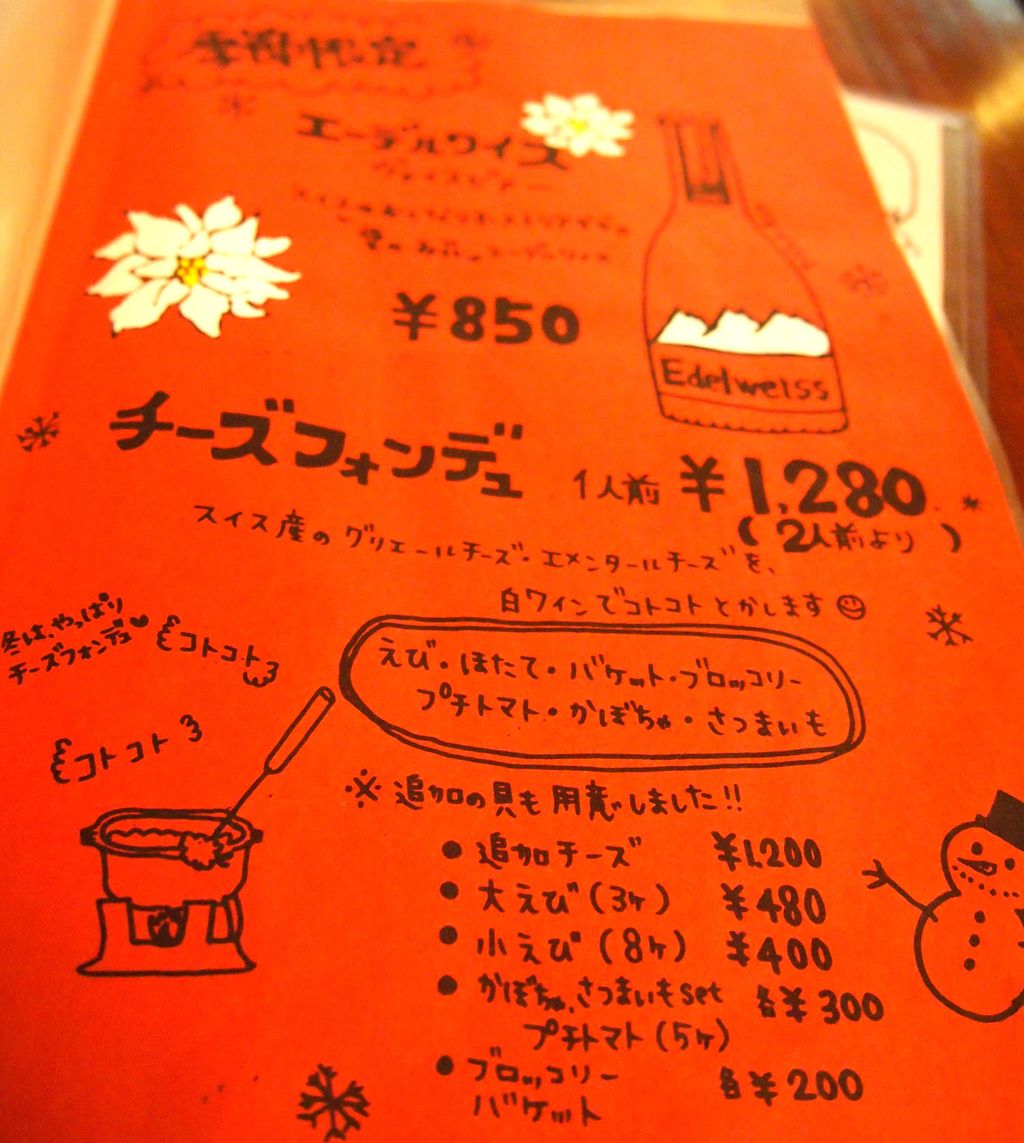 季節限定
エーデルワイス
ヴァイスビアー
¥850
Edelweiss
チーズフォンデュ 1人前 ¥1,280
(2人前より)
スイス産のグリエールチーズ・エメンタールチーズを、
白ワインでコトコトとかします
冬は、やっぱり
チーズフォンデュ
コトコト
コトコト
えび・ほたて・バケット・ブロッコリー
プチトマト・かぼちゃ・さつまいも
※追加の具も用意しました!!
● 追加チーズ ¥1,200
● 大えび(3ヶ) ¥480
● 小えび(8ヶ) ¥400
● かぼちゃ、さつまいもset 各¥300
プチトマト(5ヶ)
● ブロッコリー 各¥200
バケット